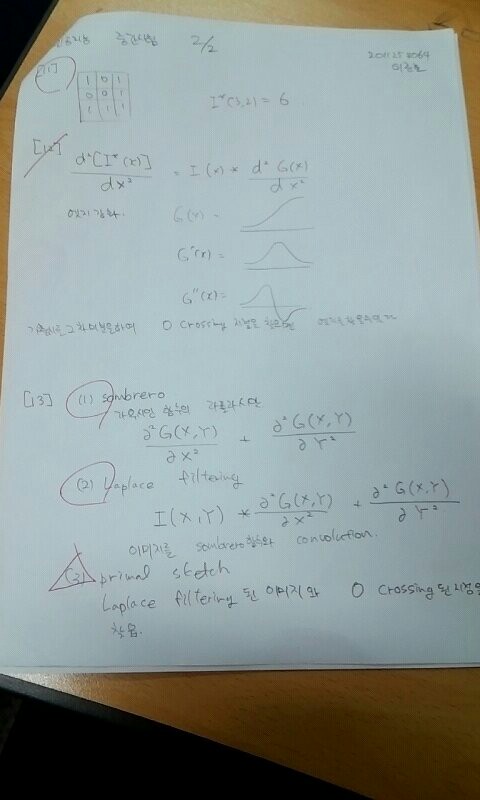 중간시험 2/2
이
[11]
1 0 1
0 0 1
1 1 1
I*(3,2) = 6
[12]
d²[I*(x)] / dx² = I(x) * d² G(x) / d x²
엣지 강화.
G(x) =
G'(x) =
G''(x) =
0 crossing 지점을 찾으면
[13] (1) sombrero
가우시안 함수의 라플라시안
∂²G(X,Y) / ∂X² + ∂²G(X,Y) / ∂Y²
(2) Laplace filtering
I(X,Y) * ∂²G(X,Y) / ∂X² + ∂²G(X,Y) / ∂Y²
이미지를 sombrero함수와 convolution.
(3) primal sketch
Laplace filtering 된 이미지와 0 crossing된 지점을
찾음.